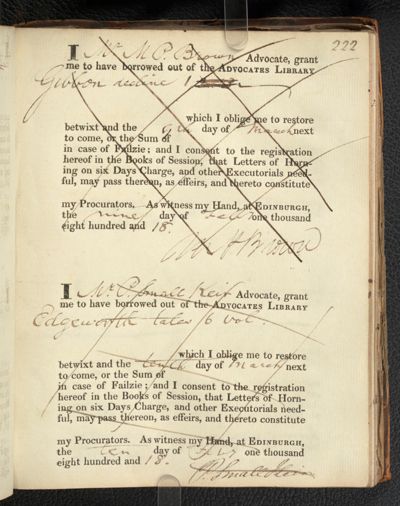 222
I Mr M P. Brown Advocate, grant
me to have borrowed out of the ADVOCATES LIBRARY
Gibbon decline 1
which I oblige me to restore
betwixt and the 9th day of March next
to come, or the Sum of
in case of Failzie; and I consent to the registration
hereof in the Books of Session, that Letters of Horn-
ing on six Days Charge, and other Executorials need-
ful, may pass thereon, as effeirs, and thereto constitute
my Procurators. As witness my Hand, at EDINBURGH,
the nine day of Feby one thousand
eight hundred and 18.
M P Brown
I Mr P. Small Keir Advocate, grant
me to have borrowed out of the ADVOCATES LIBRARY
Edgeworth tales 6 vol.
which I oblige me to restore
betwixt and the tenth day of March next
to come, or the Sum of
in case of Failzie; and I consent to the registration
hereof in the Books of Session, that Letters of Horn-
ing on six Days Charge, and other Executorials need-
ful, may pass thereon, as effeirs, and thereto constitute
my Procurators. As witness my Hand, at EDINBURGH,
the ten day of Feby one thousand
eight hundred and 18.
P. Small Keir